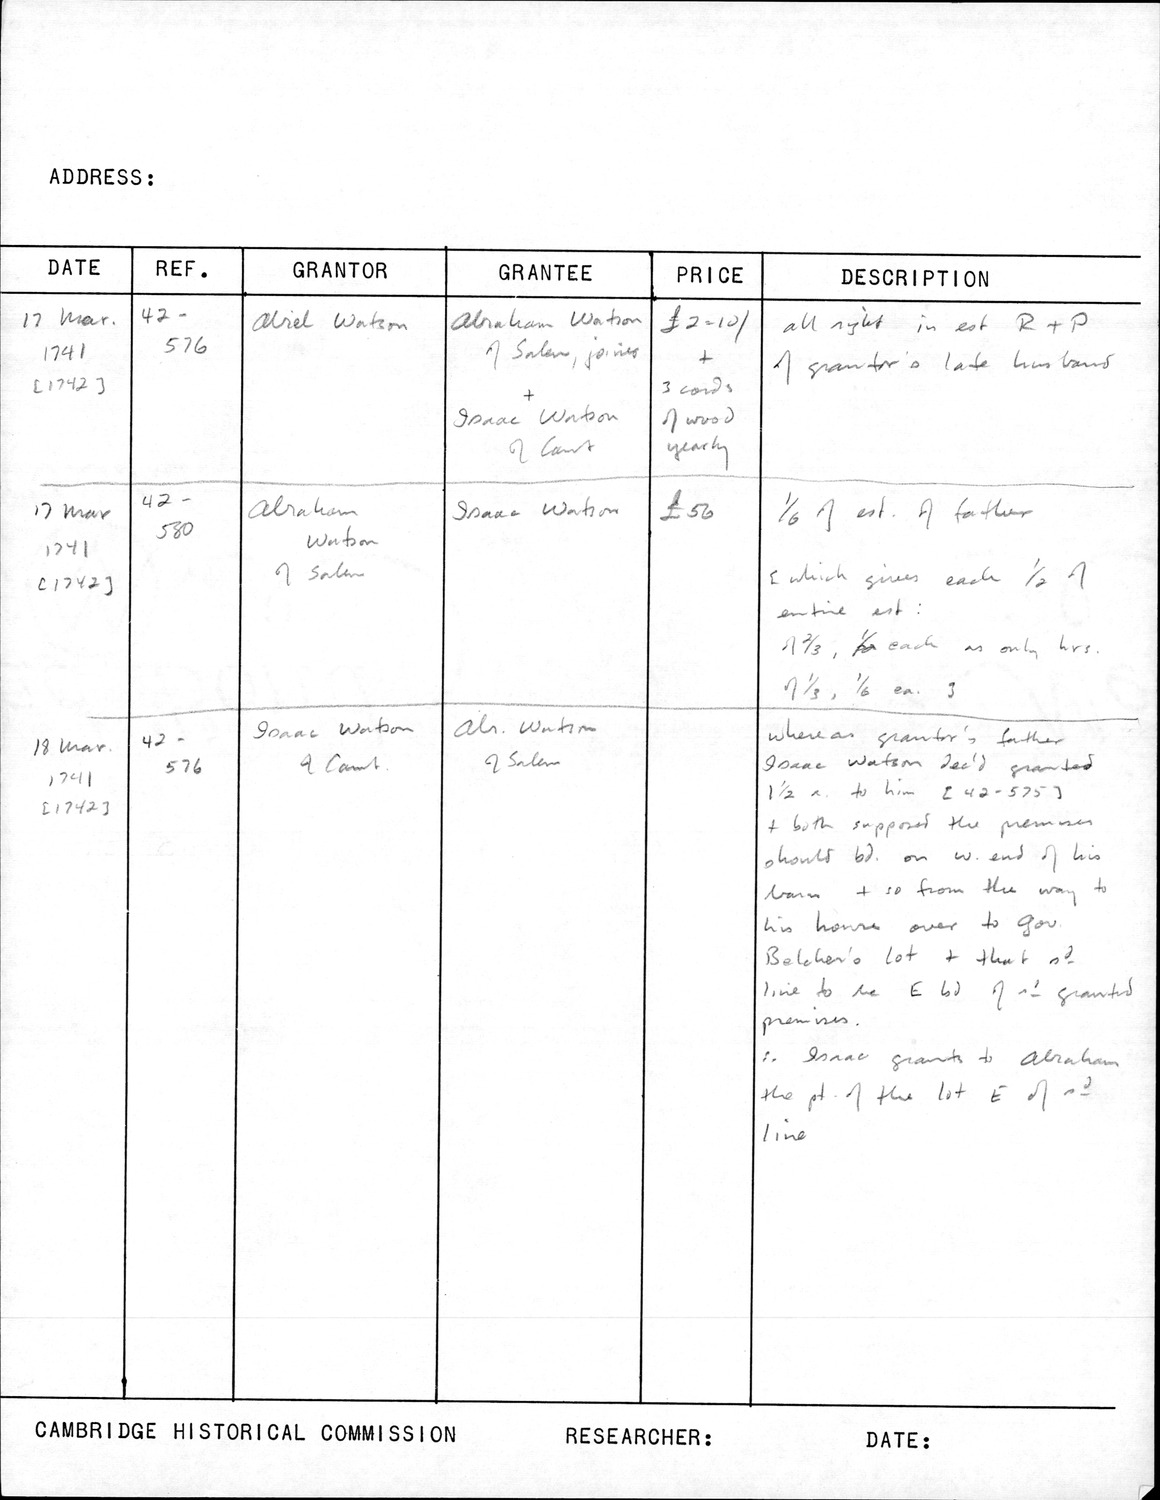 ADDRESS:
DATE REF. GRANTOR GRANTEE PRICE DESCRIPTION
17 Mar.
1741
[1742]
42-
576
Abiel Watson
Abraham Watson
of Salem, joiner
+
Isaac Watson
of Camb
£2-10/
+
3 cords
of wood
yearly
all right in est R + P
of grantor's late husband
17 Mar
1741
[1742]
42-
580
Abraham
Watson
of Salem
Isaac Watson
£56
1/6 of est. of father
[which gives each 1/2 of
entire est:
of 2/3, each as only hrs.
of 1/3, 1/6 ea. ]
18 Mar.
1741
[1742]
42-
576
Isaac Watson
of Camb.
Abr. Watson
of Salem
whereas grantor's father
Isaac Watson dec'd granted
1 1/2 a. to him [42-575]
+ both supposed the premises
should bd. on w. end of his
barn + so from the way to
his house over to Gov.
Belcher's lot + that sd
line to be E bd of sd granted
premises.
∴ Isaac grants to Abraham
the pt. of the lot E of sd
line
CAMBRIDGE HISTORICAL COMMISSION RESEARCHER: DATE: